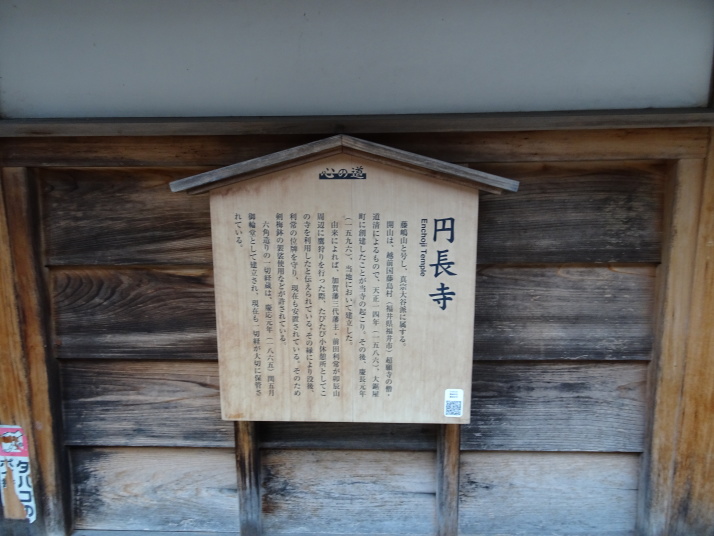 心の道
円長寺
Enchoji Temple
藤嶋山と号し、真宗大谷派に属する。
開山は、越前国藤島村(福井県福井市)超願寺の僧・
道清によるもので、天正一四年(一五八六)、大鋸屋
町に創建したことが当寺の起こり。その後、慶長元年
(一五九六)、当地において建立した。
由来によれば、加賀藩三代藩主・前田利常が卯辰山
周辺に鷹狩りを行った際、たびたび小休憩所としてこ
の寺を利用したと伝えられている。その縁により没後、
利常の位牌を守り、現在も安置されている。そのため
剣梅鉢の紋使用などが許されている。
六角造りの一切経蔵は、慶応元年(一八六五)閏五月
御輪堂として建立され、現在も一切経が大切に保管さ
れている。
タバコの